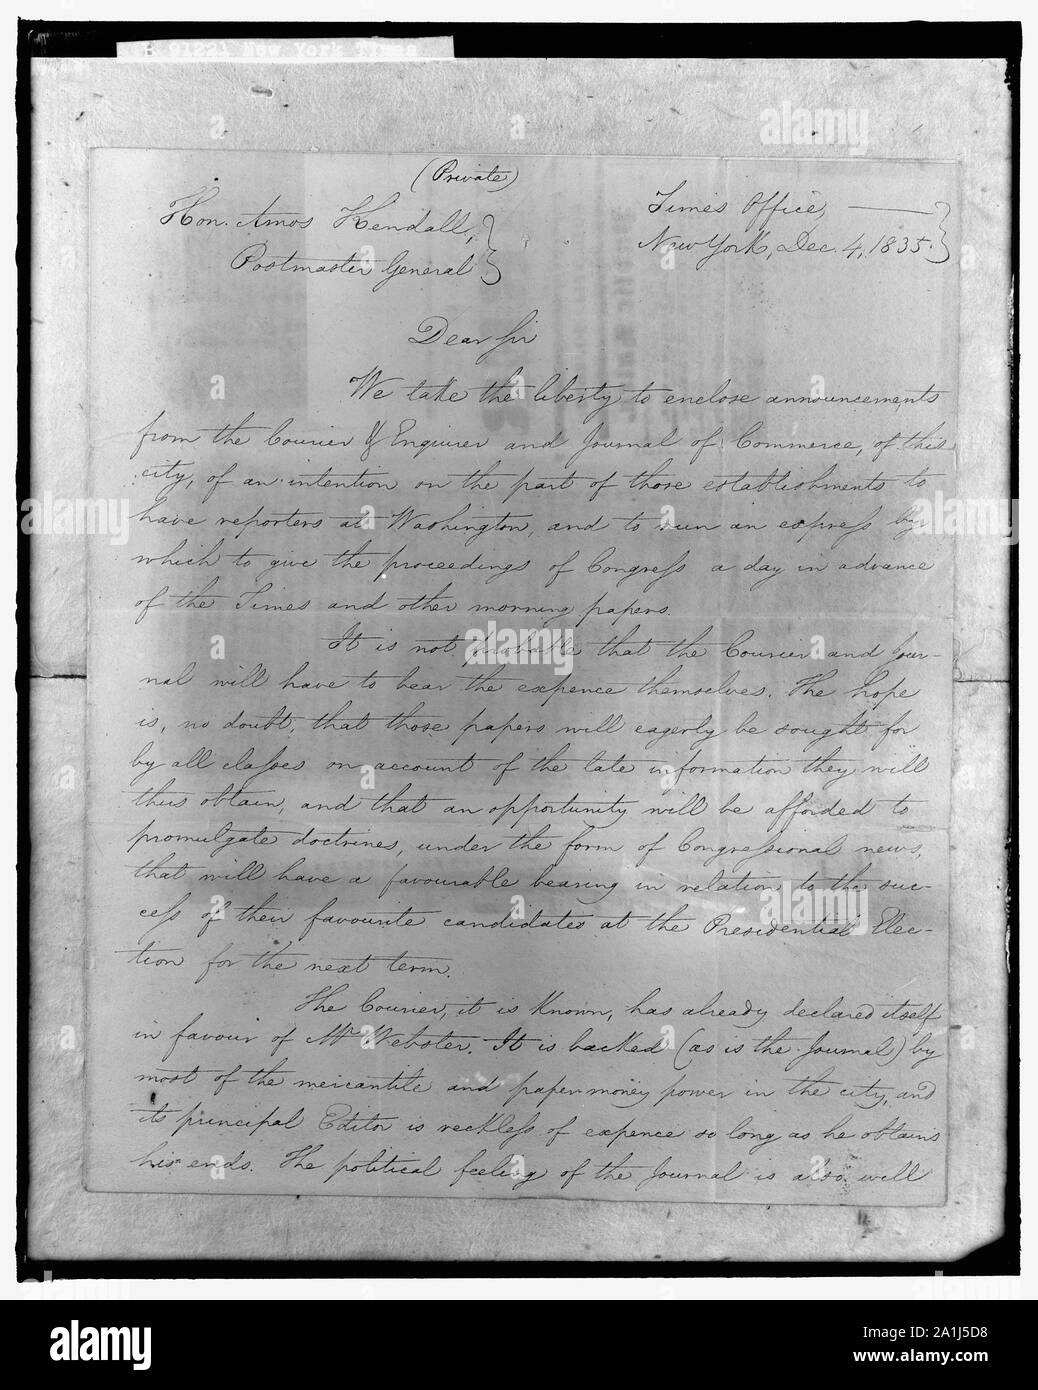 91221 New York Times
(Private)
Hon. Amos Kendall,
Postmaster General
Times Office,
New York, Dec. 4, 1835.
Dear Sir
We take the liberty to enclose announcements
from the Courier & Enquirer and Journal of Commerce, of this
city, of an intention on the part of those establishments to
have reporters at Washington, and to run an express by
which to give the proceedings of Congress a day in advance
of the Times and other morning papers.
It is not probable that the Courier and Jour-
nal will have to bear the expence themselves. The hope
is, no doubt, that those papers will eagerly be sought for
by all classes on account of the late information they will
thus obtain, and that an opportunity will be afforded to
promulgate doctrines, under the form of Congressional news,
that will have a favourable bearing in relation to the suc-
cess of their favourite candidates at the Presidential Elec-
tion for the next term.
The Courier, it is known, has already declared itself
in favour of Mr Webster. It is backed (as is the Journal) by
most of the mercantile and paper-money power in the city, and
its principal Editor is reckless of expence so long as he obtains
his ends. The political feeling of the Journal is also well
alamy
Image ID: 2A1J5D8
www.alamy.com